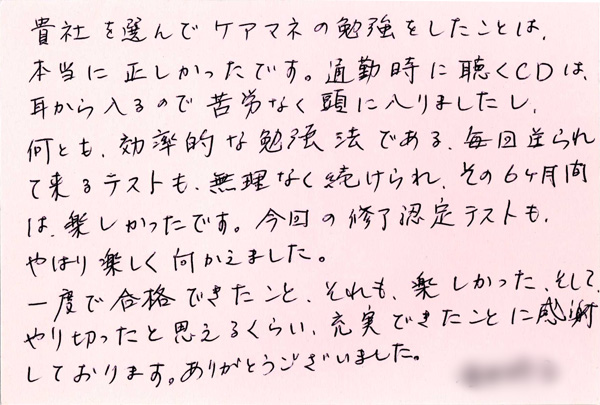 貴社を選んでケアマネの勉強をしたことは、
本当に正しかったです。通勤時に聴くCDは、
耳から入るので苦労なく頭に入りましたし、
何とも、効率的な勉強法である、毎回送られ
て来るテストも、無理なく続けられ、その6ヶ月間
は、楽しかったです。今回の修了認定テストも、
やはり楽しく向かえました。
一度で合格できたこと、それも、楽しかった、そして、
やり切ったと思えるくらい、充実できたことに感謝
しております。ありがとうございました。